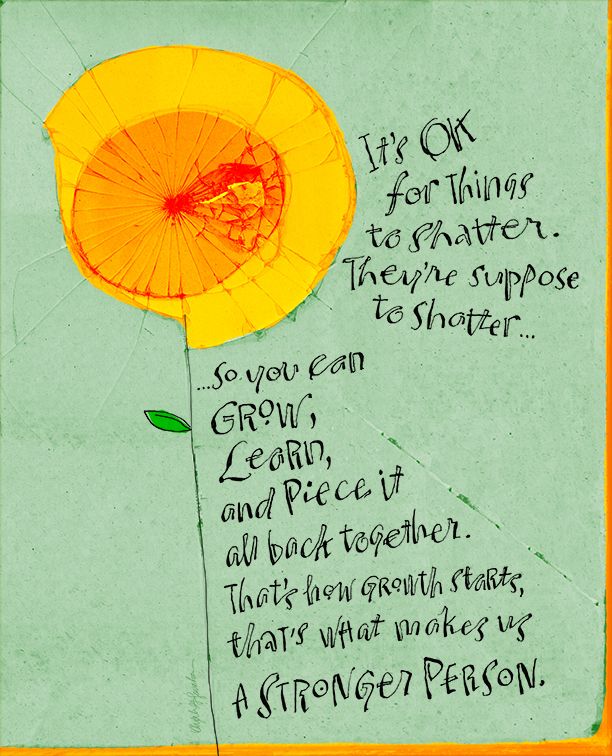 It's OK
for Things
to Shatter.
They're suppose
to Shatter...
...so you can
GROW,
LeaRn,
and Piece it
all back together.
That's how GROWth starts,
that's what makes us
A STRONGER PERSON.